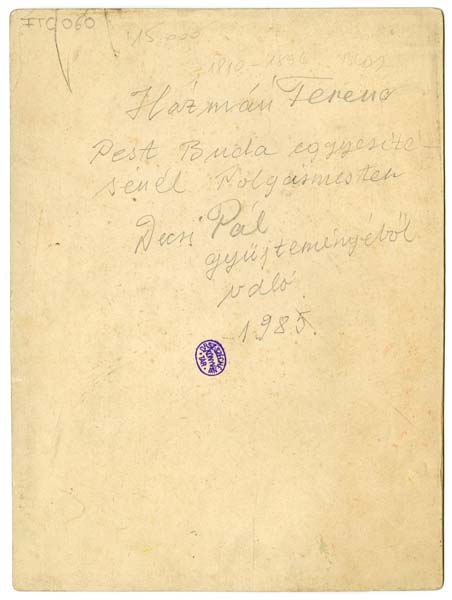 FTG 060
15.000
1810-1896
Házmán Ferenc
Pest Buda eggyesíté-
sénél Polgásmester
Decsi Pál
gyűjteményéből
való
1985.